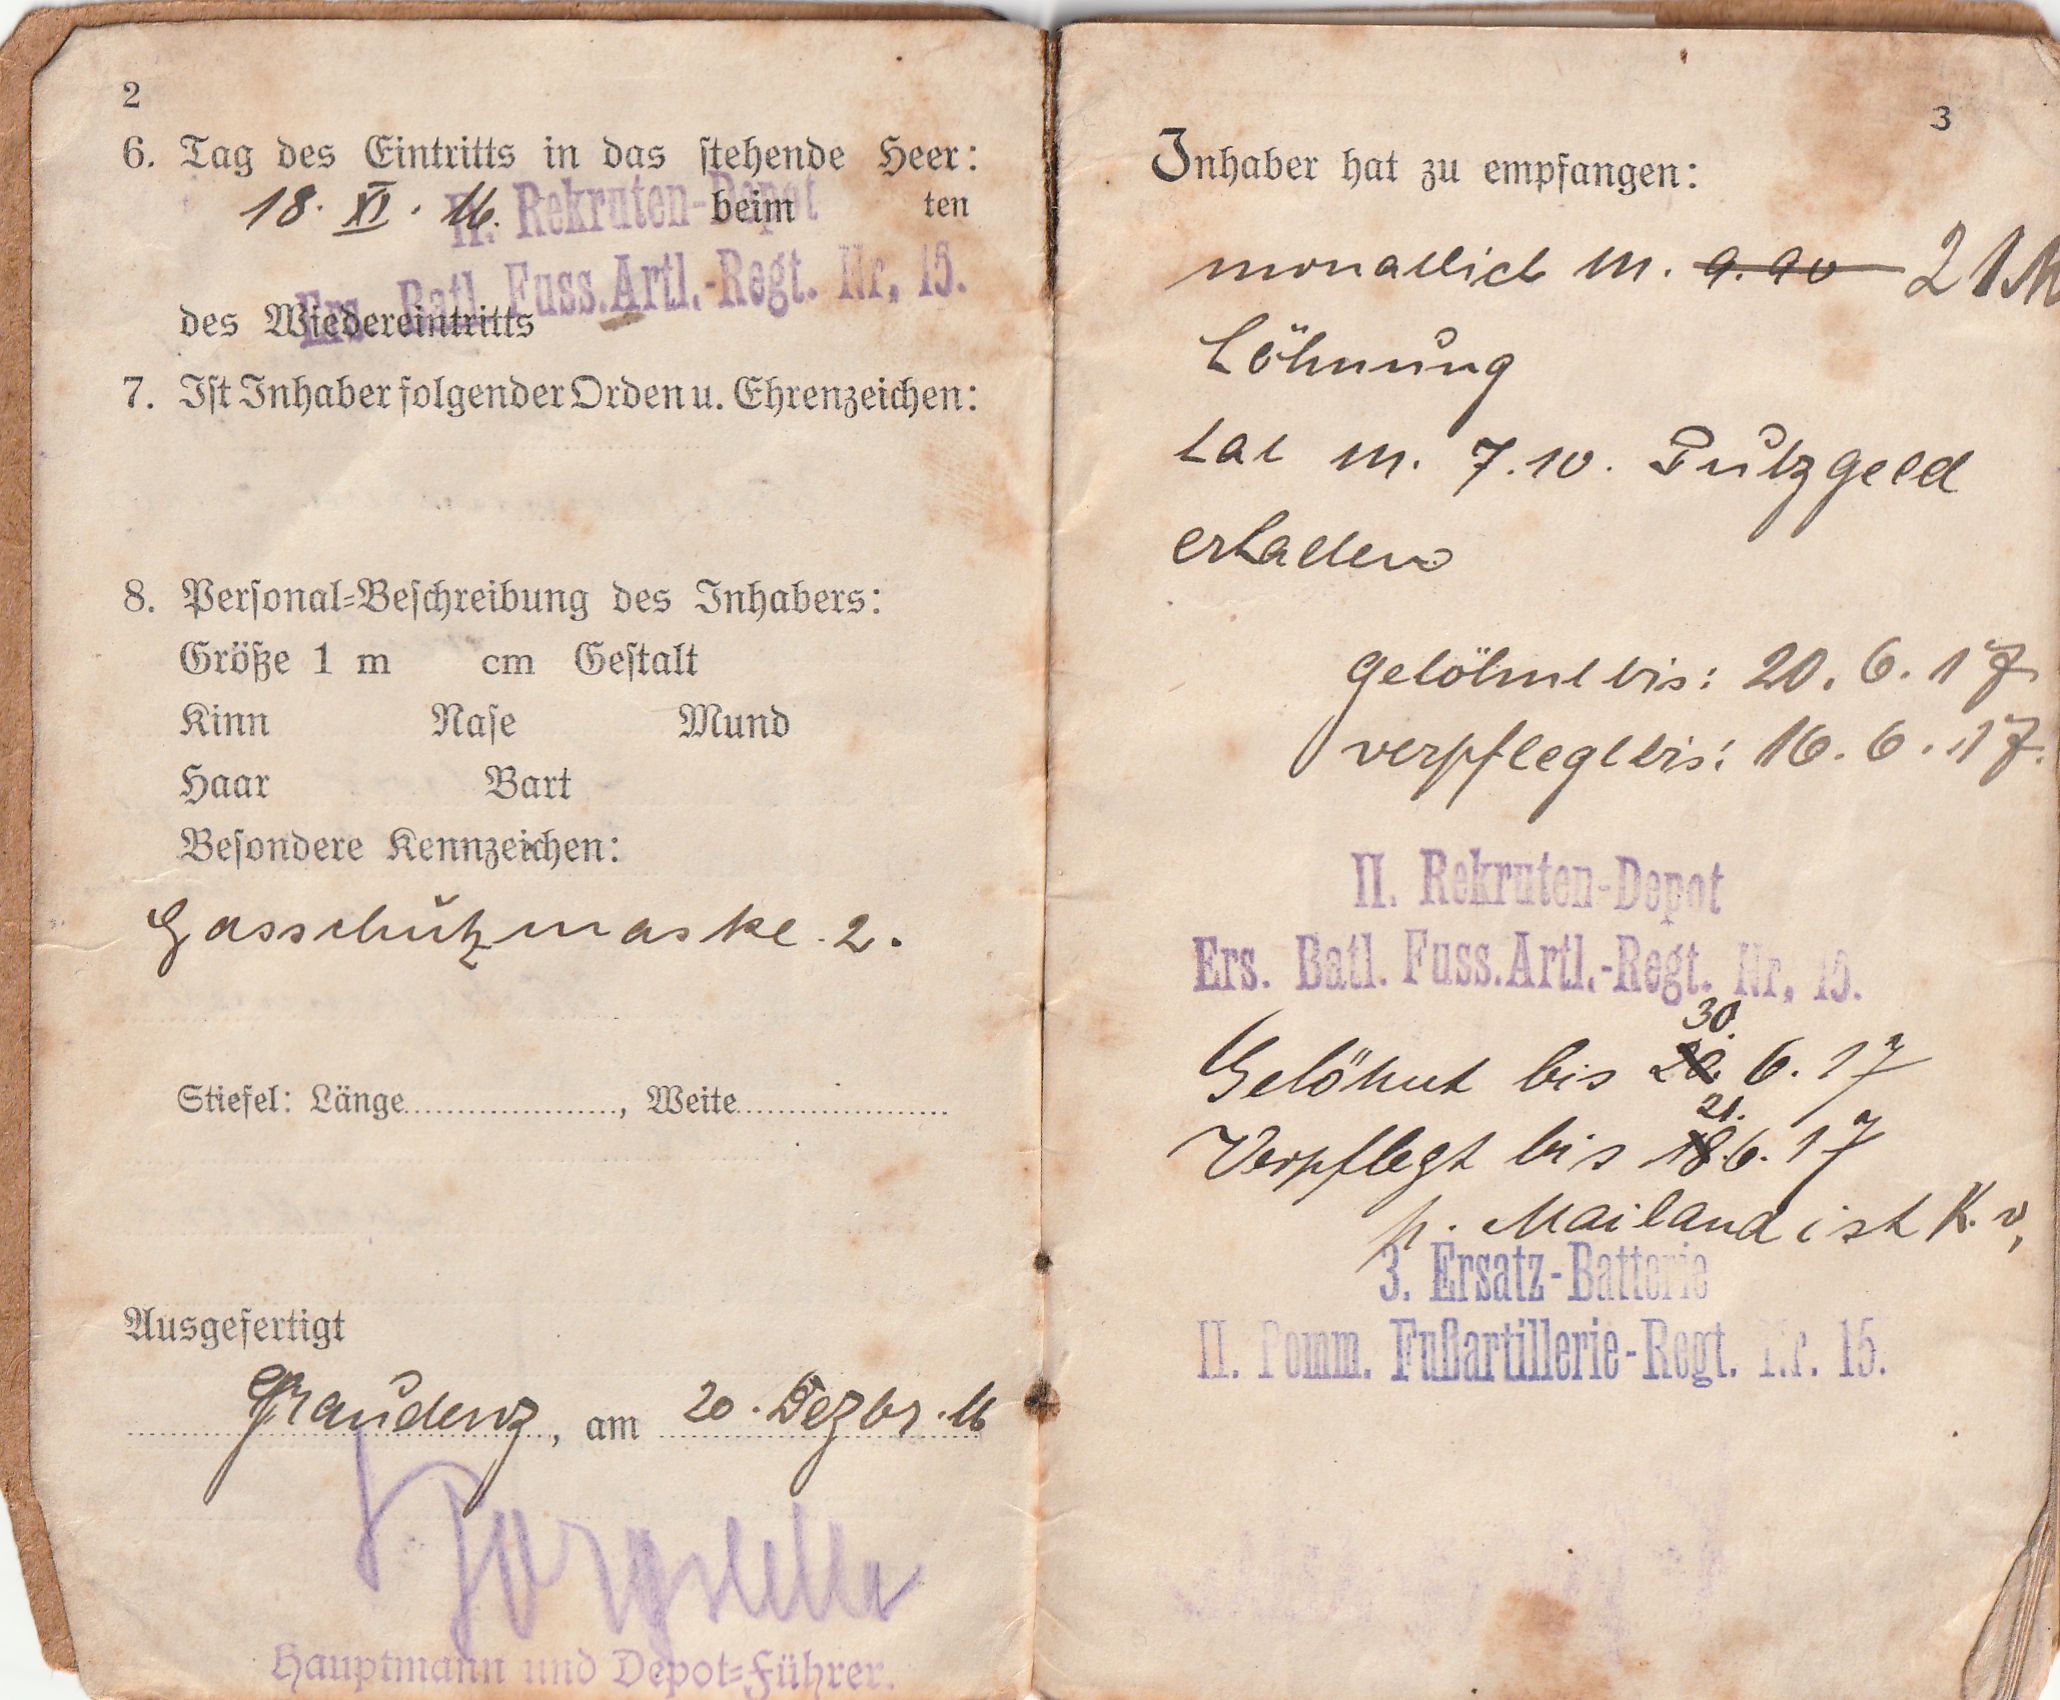 2
6. Tag des Eintritts in das stehende Heer:
18. XI. 16. beim ten
II. Rekruten-Depot
Ers. Batl. Fuss.Artl.-Regt. Nr. 15.
des Wiedereintritts
7. Ist Inhaber folgender Orden u. Ehrenzeichen:
8. Personal-Beschreibung des Inhabers:
Größe 1 m cm Gestalt
Kinn Nase Mund
Haar Bart
Besondere Kennzeichen:
Gasschutzmaske 2.
Stiefel: Länge, Weite
Ausgefertigt
Graudenz, am 20. Dezbr. 16
Hauptmann und Depot-Führer.
3
Inhaber hat zu empfangen:
monatlich M. 9.90 21 M
Löhnung
hat M. 7.10. Putzgeld
erhalten
gelöhnt bis: 20. 6. 17
verpflegt bis: 16. 6. 17.
II. Rekruten-Depot
Ers. Batl. Fuss.Artl.-Regt. Nr. 15.
30.
Gelöhnt bis 20. 6. 17
21.
Verpflegt bis 18. 6. 17
p. Mailand ist K. v.
3. Ersatz-Batterie
II. Pomm. Fußartillerie-Regt. Nr. 15.